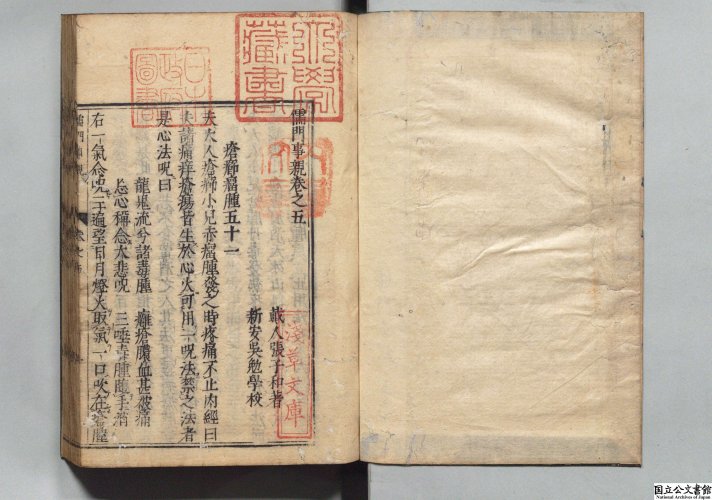 儒門事親卷之五
戴人張子和著
新安吳勉學校
瘡癤瘤腫五十一
夫大人瘡癤小兒赤瘤腫發之時疼痛不止內經曰
諸痛痒瘡瘍皆生於心火可用一咒法禁之法者
是心法咒曰
龍鬼流兮諸毒腫 癰瘡膿血甚被痛
忘心稱念大悲咒 三唾毒腫隨手消
右一氣念咒三遍望日月燈火取氣一口吹在瘡腫
昌平學
藏書
日本
政府
圖書
淺草文庫
国立公文書館
National Archives of Japan